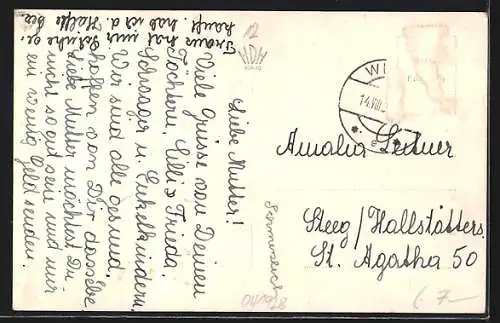 Liebe Mutter!
Viele Grüsse von Deinen
Töchtern, Lilli u Frieda.
Schwager u. Enkelkindern.
Wir sind alle gesund,
hoffen von Dir dasselbe
Liebe Mutter möchtest Du
nicht so gut sein und mir
ein wenig Geld senden.
hat mir Schuhe ge-
kauft. hab ich d. Hälfte
12
HDH
WI
14.VIII.
Amalia Leitner
Steeg/Hallstätters.
St. Agatha 50
(.7-